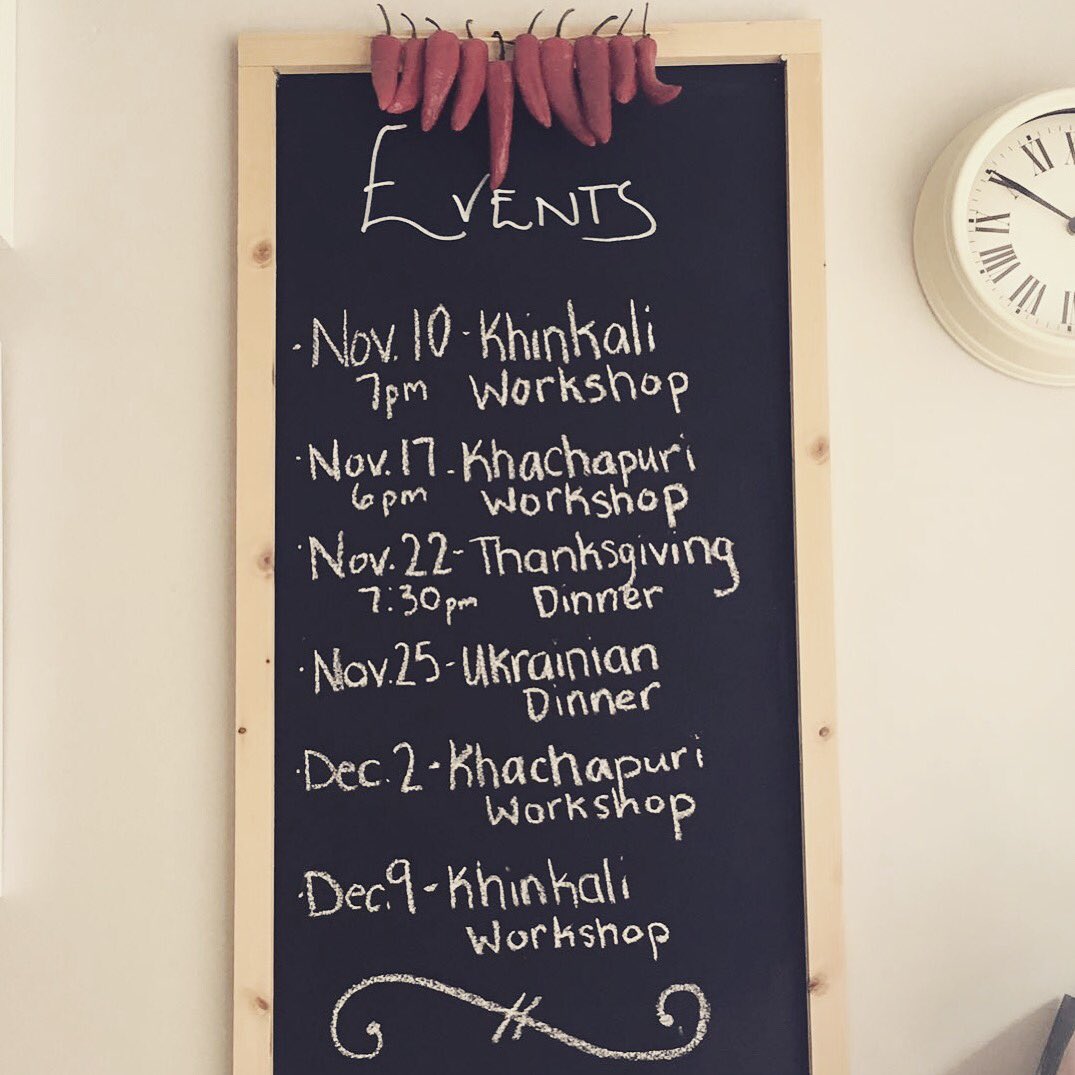 Events
· Nov. 10 - Khinkali
7pm Workshop
· Nov. 17 - Khachapuri
6pm Workshop
· Nov. 22 - Thanksgiving
7:30pm Dinner
· Nov. 25 - Ukrainian
Dinner
· Dec. 2 - Khachapuri
Workshop
· Dec. 9 - Khinkali
Workshop
XII
XI
X
IX
VIII
VII
VI